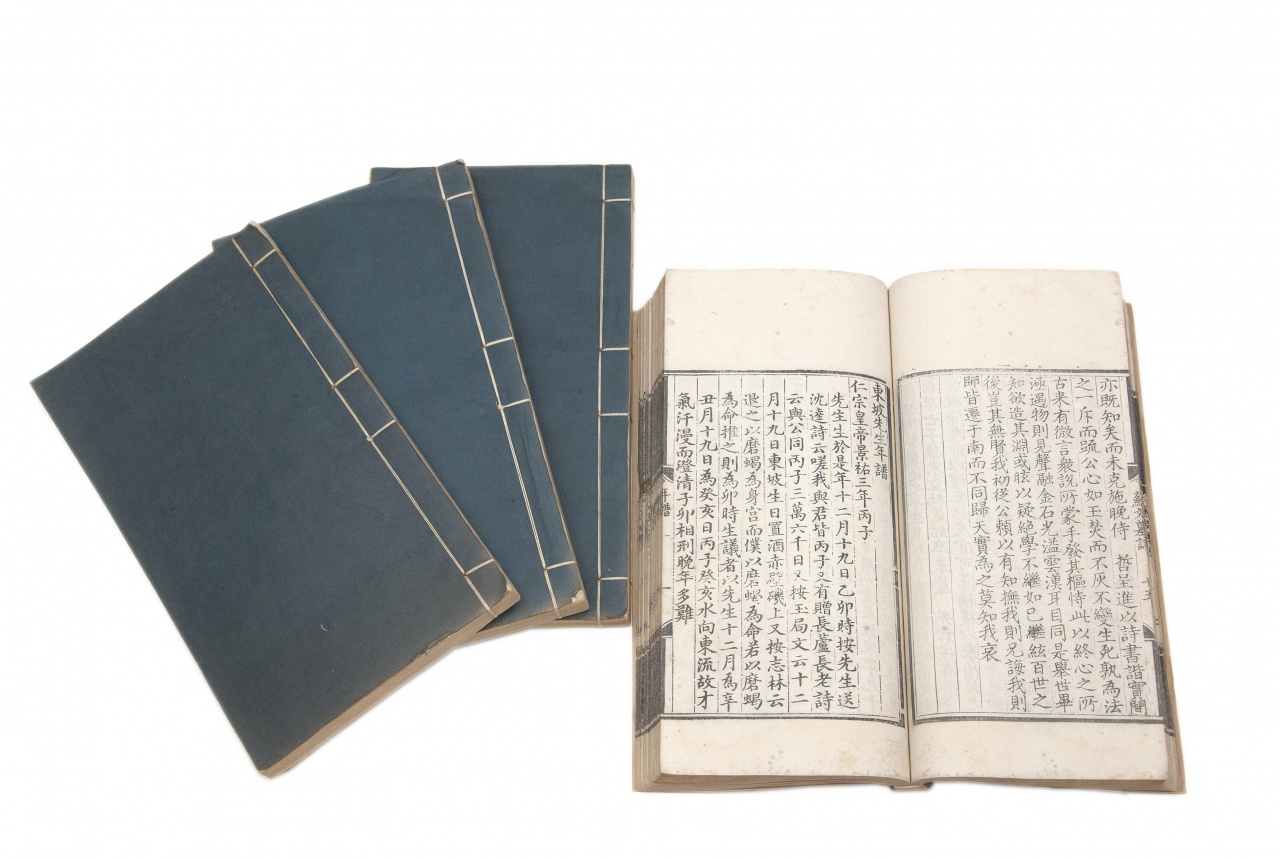 亦既知矣而未克施晚侍　哲呈進以詩書諧實聞
之一斥而疏公心如玉焚而不灰不變生死孰為法
古来有微言衆説所蒙手發其樞恃此以終心之所
涵遇物則見聲融金石光溢雲漢耳目同是舉世畢
知欲造其淵或眩以疑絶學不繼如已繼絃百世之
後豈其無賢我初從公賴以有知撫我則兄誨我則
師皆遷于南而不同歸天實為之莫知我哀
東坡先生年譜
仁宗皇帝景祐三年丙子
先生生於是年十二月十九日乙卯時按先生送
沈逵詩云嗟我與君皆丙子又有贈長蘆長老詩
云與公同丙子三萬六千日又按玉局文云十二
月十九日東坡生日置酒赤壁磯上又按志林云
退之以磨蝎為身宫而僕以磨蝎為命若以磨蝎
為命推之則為卯時生議者以先生十二月為辛
丑月十九日為癸亥日丙子癸亥水向東流故才
氣汗漫而澄清子卯相刑晚年多難
年譜